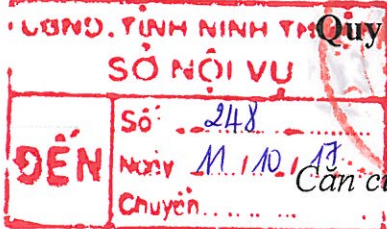 UBND. TỈNH NINH TH Quy
SỞ NỘI VỤ
ĐẾN
Số 248
Ngày 11 / 10 / 17 Căn c
Chuyển